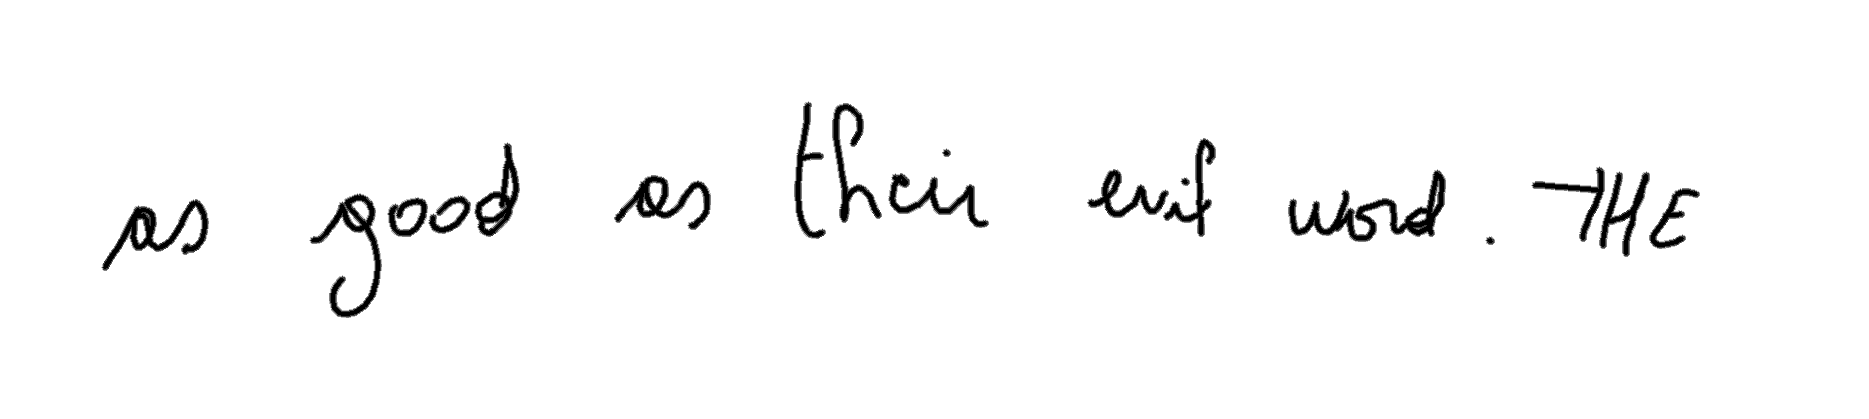 as good as their evil word. THE